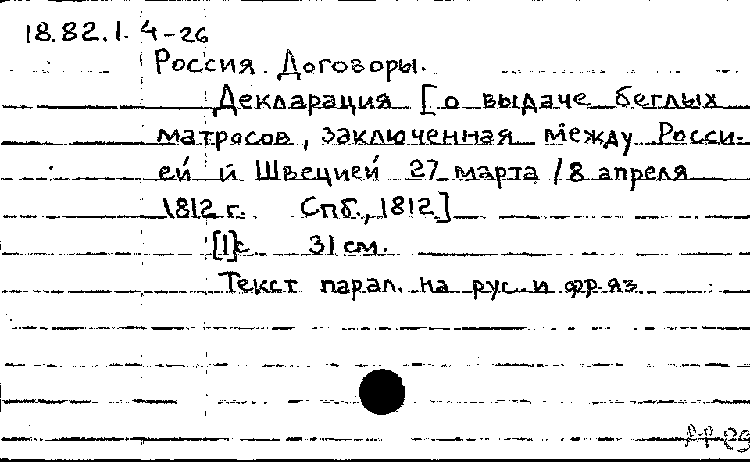 18.82.1.4-26
Россия. Договоры.
Декларация [о выдаче беглых
матросов, заключенная между Росси-
ей и Швецией 27 марта /8 апреля
1812 г. Спб., 1812]
[1]с 31 см.
Текст парал. на рус. и фр. яз.